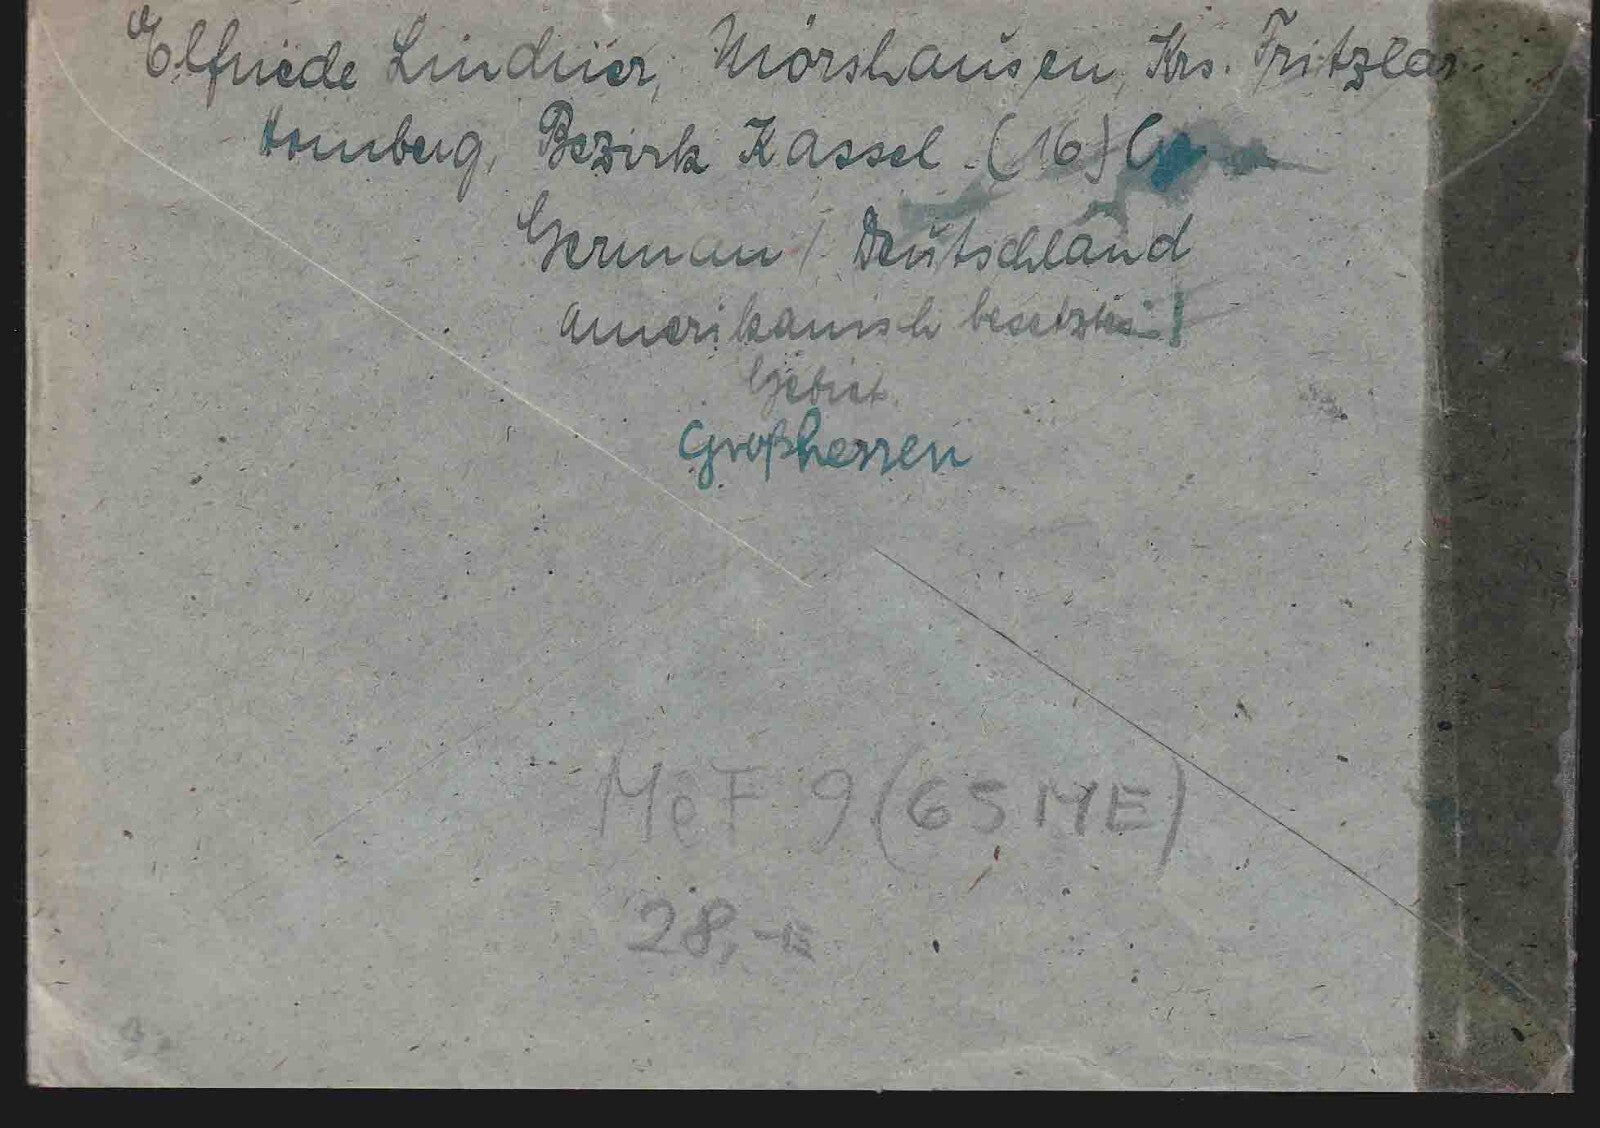 Elfriede Lindner, Mörshausen, Krs. Fritzlar
Homberg, Bezirk Kassel. (16)
German / Deutschland
amerikanisch besetztes
Gebiet
Großhessen
MeF 9 (65 ME)
28,-E